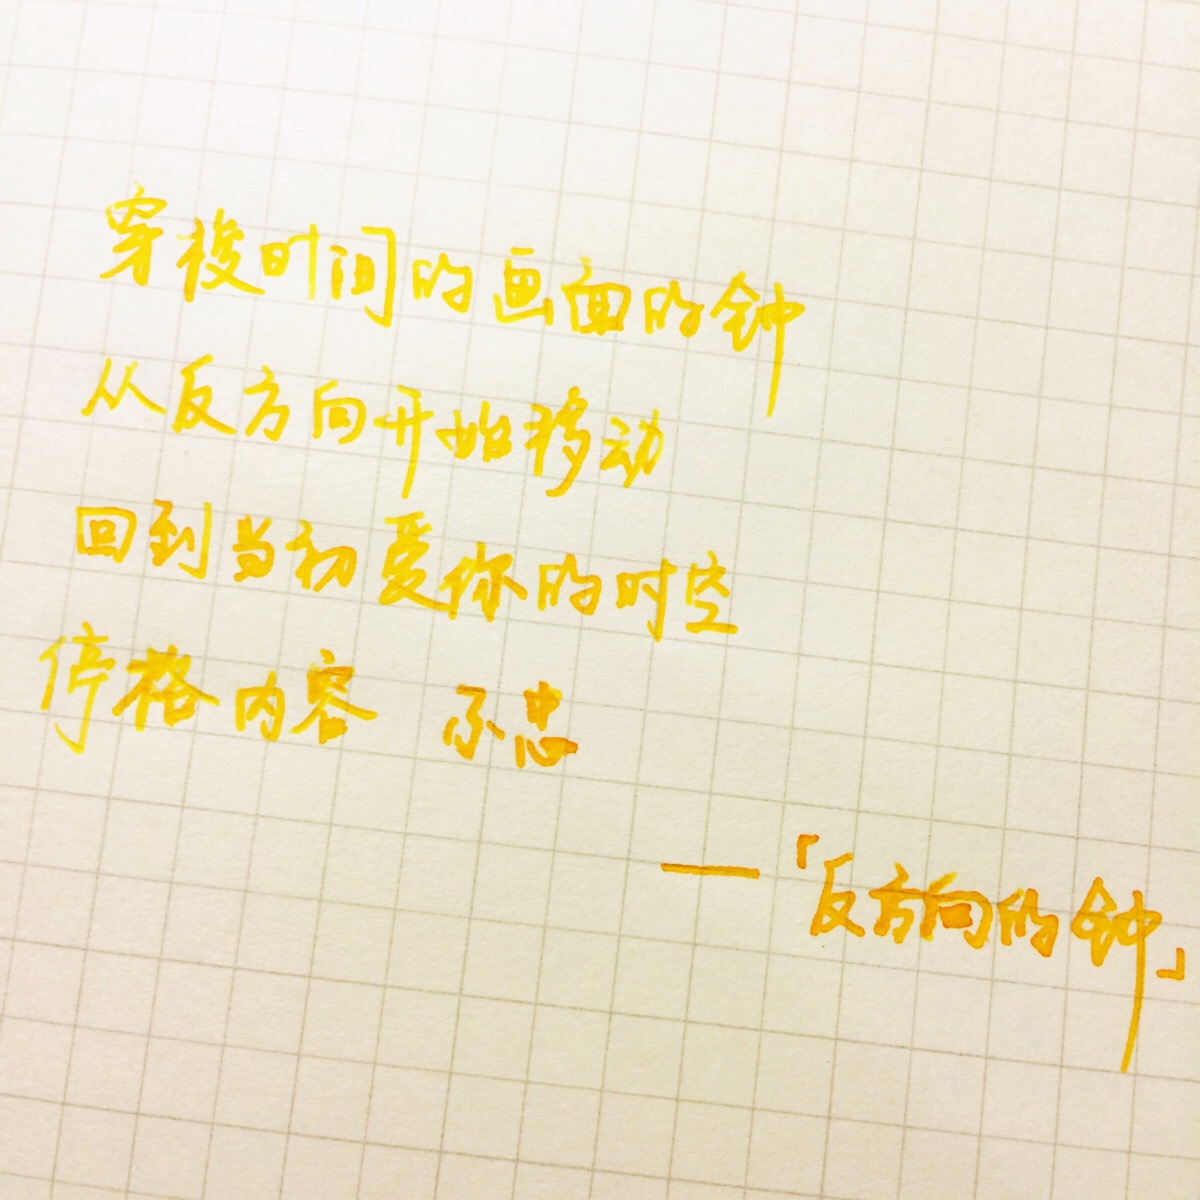 穿梭时间的画面的钟
从反方向开始移动
回到当初爱你的时空
停格内容 不忠
——「反方向的钟」